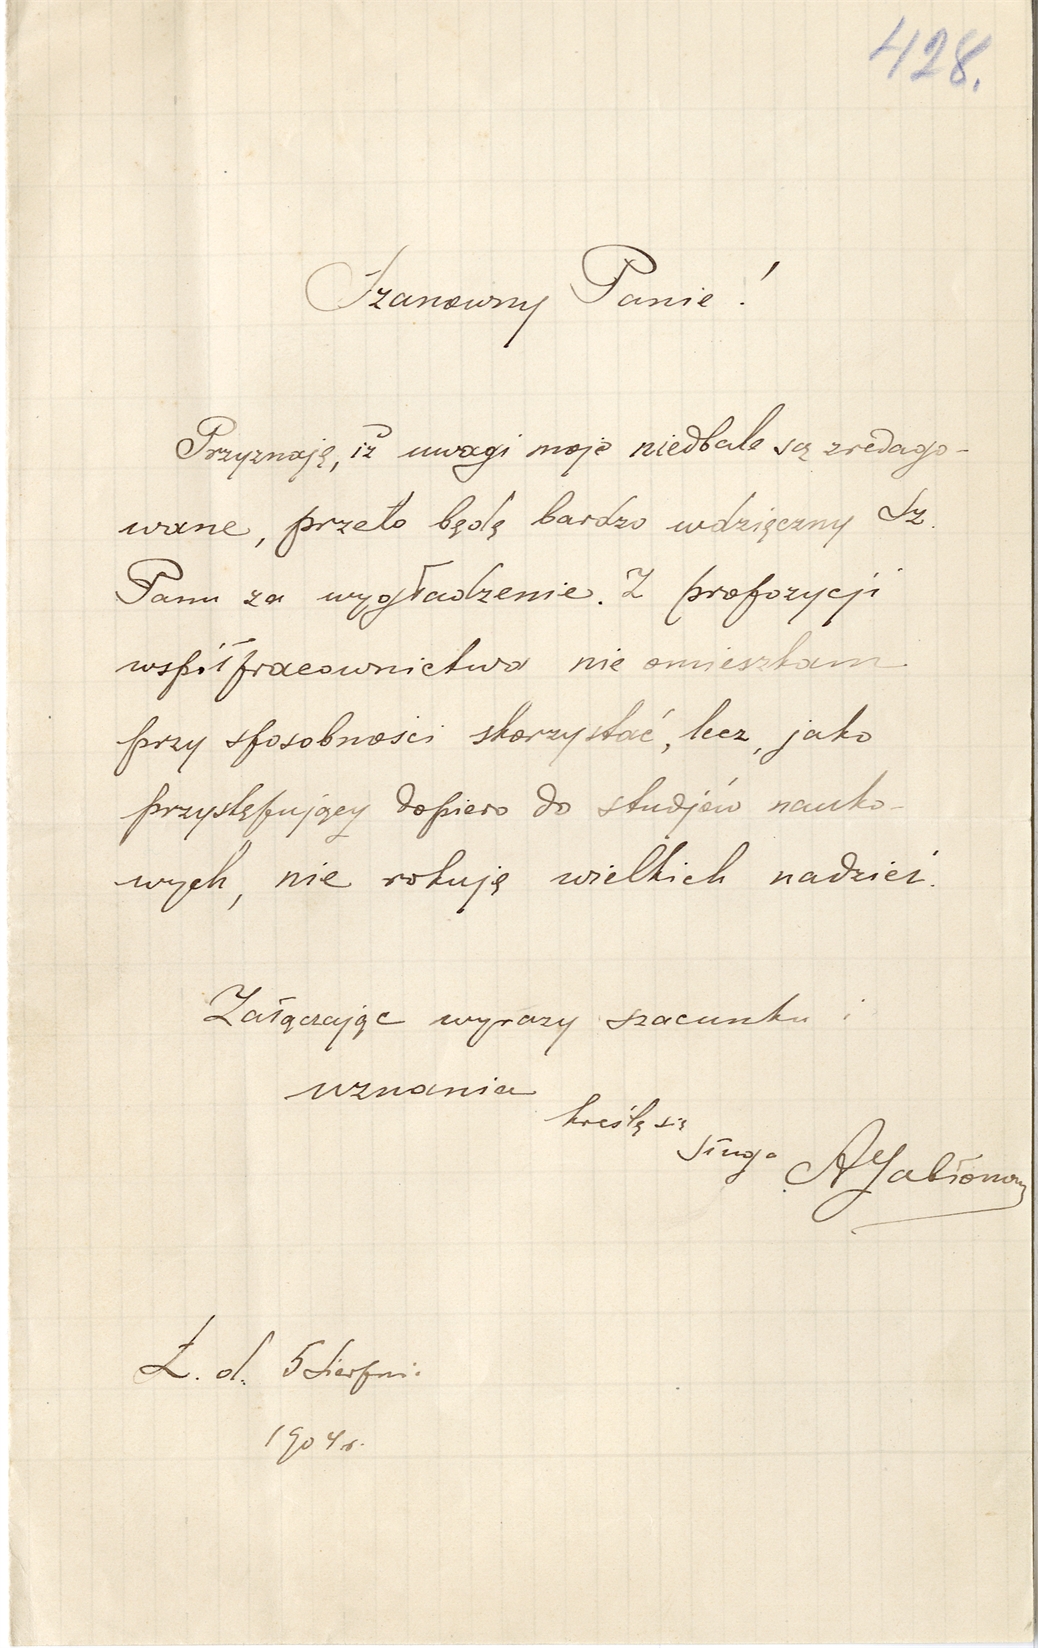 428.
Szanowny Panie!
Przyznaję, iż uwagi moje niedbale są zredago-
wane, przeto będę bardzo wdzięczny Sz.
Panu za wygładzenie. Z propozycji
współpracownictwa nie omieszkam
przy sposobności skorzystać, lecz, jako
przystępujący dopiero do studjów nauko-
wych, nie rokuję wielkich nadziei.
Załączając wyrazy szacunku i
uznania
kreślę się
sługa AJabłonow
Ł. d. 5 Sierpni
1904 r.